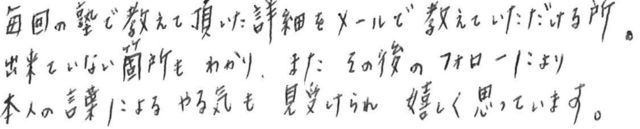 毎回の塾で教えて頂いた詳細をメールで教えていただける所。
出来ていない箇所もわかり、また その後のフォローにより
本人の言葉によるやる気も 見受けられ 嬉しく思っています。